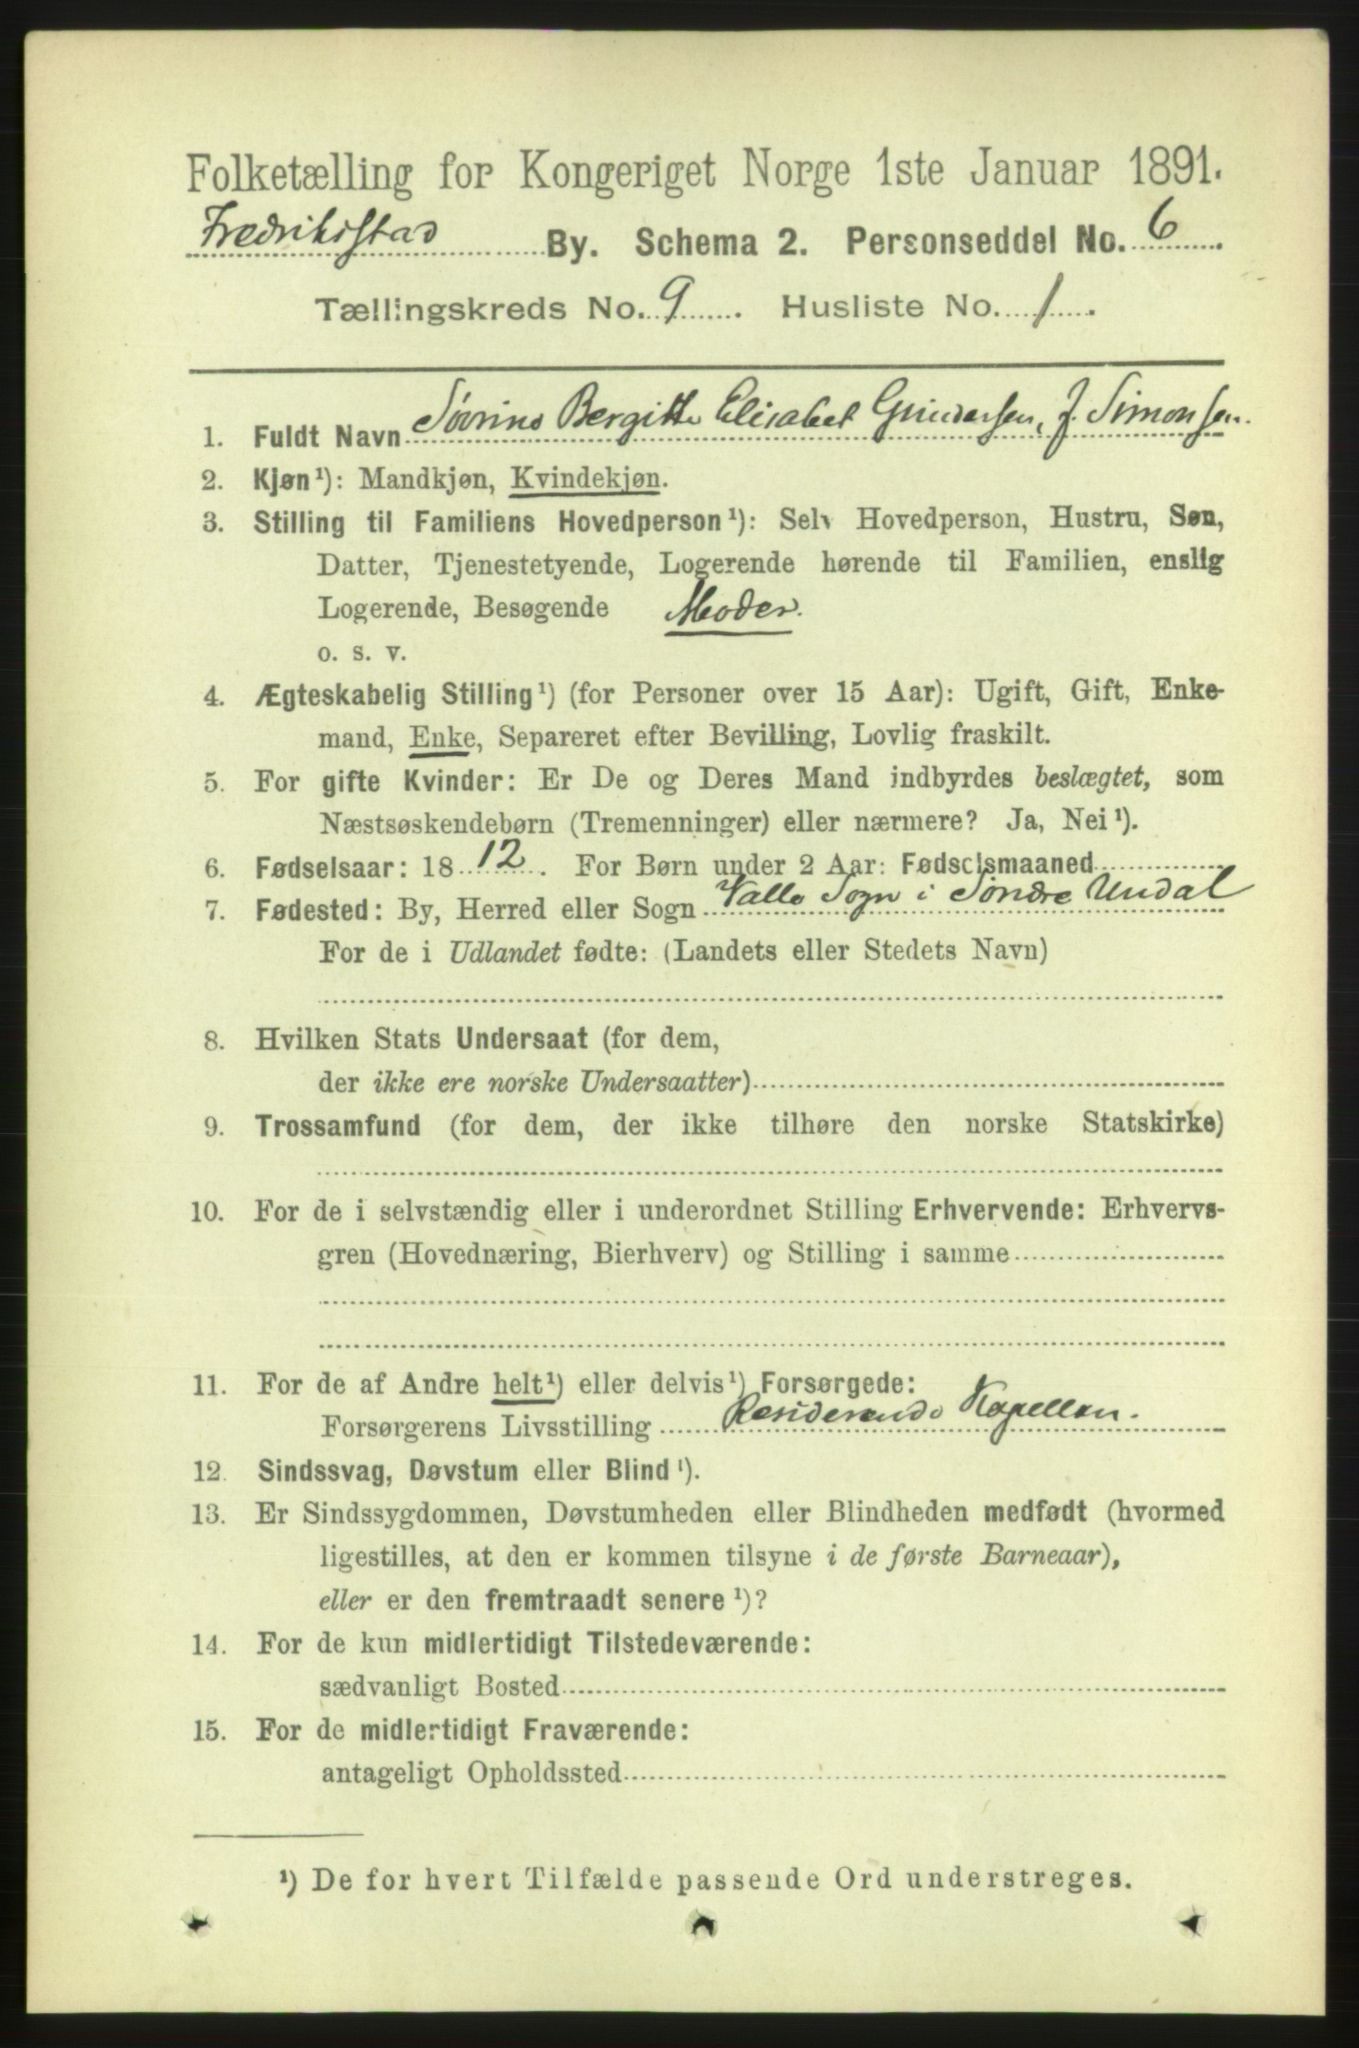 Folketælling for Kongeriget Norge 1ste Januar 1891.
Fredrikstad By. Schema 2. Personseddel No. 6.
Tællingskreds No. 9. Husliste No. 1.
1. Fuldt Navn Sørine Bergitte Elisabet Gundersen, f. Simonsen.
2. Kjøn¹): Mandkjøn, Kvindekjøn.
3. Stilling til Familiens Hovedperson¹): Selv Hovedperson, Hustru, Søn,
Datter, Tjenestetyende, Logerende hørende til Familien, enslig
Logerende, Besøgende Moder.
o. s. v.
4. Ægteskabelig Stilling¹) (for Personer over 15 Aar): Ugift, Gift, Enke-
mand, Enke, Separeret efter Bevilling, Lovlig fraskilt.
5. For gifte Kvinder: Er De og Deres Mand indbyrdes beslægtet, som
Næstsøskendebørn (Tremenninger) eller nærmere? Ja, Nei¹).
6. Fødselsaar: 1812. For Børn under 2 Aar: Fødselsmaaned
7. Fødested: By, Herred eller Sogn Valle Sogn i Søndre Undal
For de i Udlandet fødte: (Landets eller Stedets Navn)
8. Hvilken Stats Undersaat (for dem,
der ikke ere norske Undersaatter)
9. Trossamfund (for dem, der ikke tilhøre den norske Statskirke)
10. For de i selvstændig eller i underordnet Stilling Erhvervende: Erhvervs-
gren (Hovednæring, Bierhverv) og Stilling i samme
11. For de af Andre helt¹) eller delvis¹) Forsørgede:
Forsørgerens Livsstilling Residerende Kapellan.
12. Sindssvag, Døvstum eller Blind¹).
13. Er Sindssygdommen, Døvstumheden eller Blindheden medfødt (hvormed
ligestilles, at den er kommen tilsyne i de første Barneaar),
eller er den fremtraadt senere¹)?
14. For de kun midlertidigt Tilstedeværende:
sædvanligt Bosted
15. For de midlertidigt Fraværende:
antageligt Opholdssted
¹) De for hvert Tilfælde passende Ord understreges.